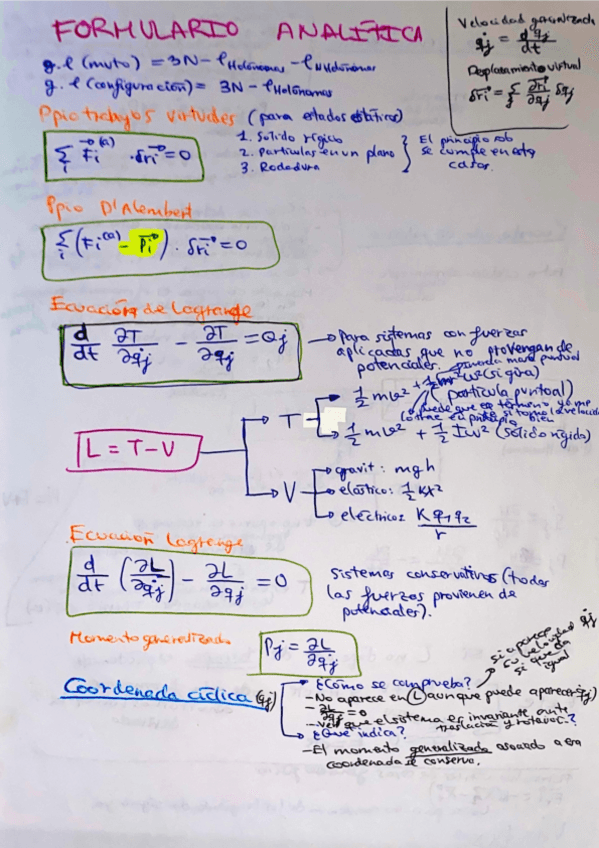 FORMULARIO ANALÍTICA
Velocidad generalizada
q̇j = dqj/dt
Desplazamiento virtual
δr⃗i = Σj ∂r⃗i/∂qj δqj
g.l (muto) = 3N - lHolónomas - lNHolónomas
g.l (configuración) = 3N - lHolónomas
Ppio trabajos virtudes (para estados estáticos)
Σi F⃗i(a) · δr⃗i = 0
1. Solido rígido
2. Partículas en un plano
3. Rodadura
El principio solo
se cumple en estos
casos.
Ppio D'Alembert
Σi (Fi(a) - Ṗi) · δr⃗i = 0
Ecuación de Lagrange
d/dt ∂T/∂q̇j - ∂T/∂qj = Qj
Para sistemas con fuerzas
aplicadas que no provengan de
potenciales.
T =
1/2 mv² + 1/2 mr²ω² (si gira)
(partícula puntual)
1/2 mv² + 1/2 Iω² (solido rígido)
L = T - V
V
gravit: mgh
elástico: 1/2 Kx²
eléctrico: K q1 q2 / r
Ecuación Lagrange
d/dt (∂L/∂q̇j) - ∂L/∂qj = 0
Sistemas conservativos (todas
las fuerzas provienen de
potenciales).
Momento generalizado
Pj = ∂L/∂q̇j
si aparece q̇j
su velocidad
si que da
igual
Coordenada cíclica (qj)
¿Cómo se comprueba?
- No aparece en L aunque puede aparecer q̇j)
- ∂L/∂qj = 0
- Ver que el sistema es invariante ante
traslación y rotación.
¿Qué indica?
- El momento generalizado asociado a esa
coordenada se conserva.